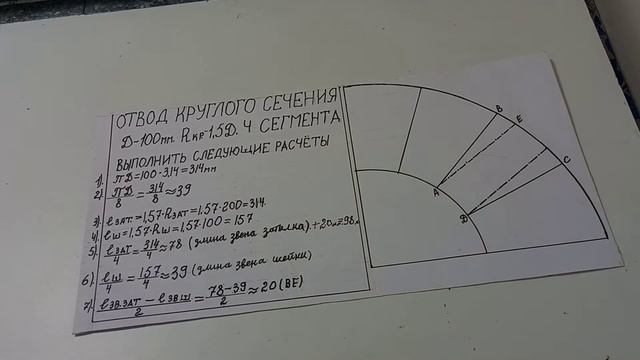 ОТВОД КРУГЛОГО СЕЧЕНИЯ
D-100мм. Rкр-1,5D. 4 СЕГМЕНТА
ВЫПОЛНИТЬ СЛЕДУЮЩИЕ РАСЧЁТЫ
1). ПD=100·3,14=314мм
2). ПD/8 = 314/8 ≈ 39
3). ℓзат.=1,57·Rзат=1,57·200=314.
4). ℓш=1,57·Rш=1,57·100=157
5). ℓзат/4 = 314/4 ≈ 78 (длина звена затылка).+20м=98м
6). ℓш/4 = 157/4 ≈ 39 (длина звена шейки)
7). (ℓзв.зат – ℓзвш)/2 = (78-39)/2 ≈ 20 (BE)
B
E
C
A
D